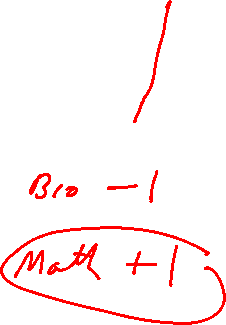 Bio -1
Math +1